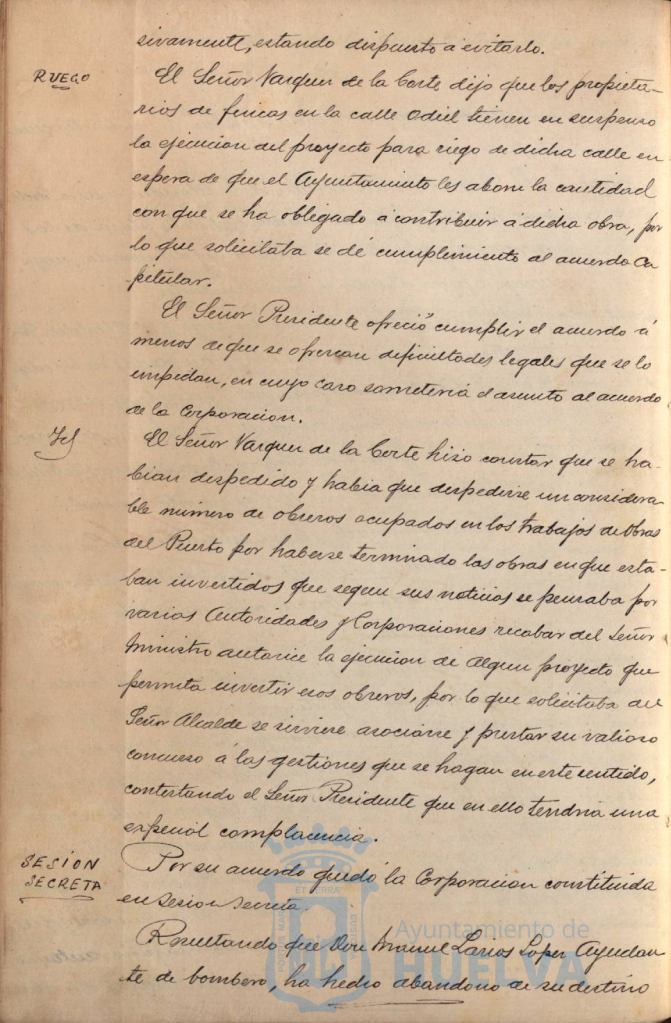 sivamente, estando dispuesto á evitarlo.
RUEGO
El Señor Vazquez de la Corte dijo que los propieta-
rios de fincas en la calle Odiel tienen en suspenso
la ejecucion del proyecto para riego de dicha calle en
espera de que el Ayuntamiento les abone la cantidad
con que se ha obligado á contribuir á dicha obra, por
lo que solicitaba se dé cumplimiento al acuerdo Ca
pitular.
El Señor Presidente ofreció cumplir el acuerdo á
menos de que se ofrezcan dificultades legales que se lo
impedan, en cuyo caso someteria el asunto al acuerdo
de la Corporacion.
Id
El Señor Vazquez de la Corte hizo constar que se ha-
bian despedido y habia que despedirse un considera-
ble número de obreros ocupados en los trabajos de Obras
del Puerto por haberse terminado las obras en que esta-
ban invertidos que segun sus noticias se pensaba por
varias Autoridades y Corporaciones recabar del Señor
Ministro autorice la ejecucion de algun proyecto que
permita invertir esos obreros, por lo que solicitaba del
Señor Alcalde se sirviese asociarse y prestar su valioso
concurso á las gestiones que se hagan en este sentido,
contestando el Señor Presidente que en ello tendria una
especial complacencia.
SESION
SECRETA
Por su acuerdo quedó la Corporacion constituida
en sesion secreta.
Resultando que Don Manuel Larios Lopez Ayudan
te de bombero, ha hecho abandono de su destino
Ayuntamiento de
HUELVA